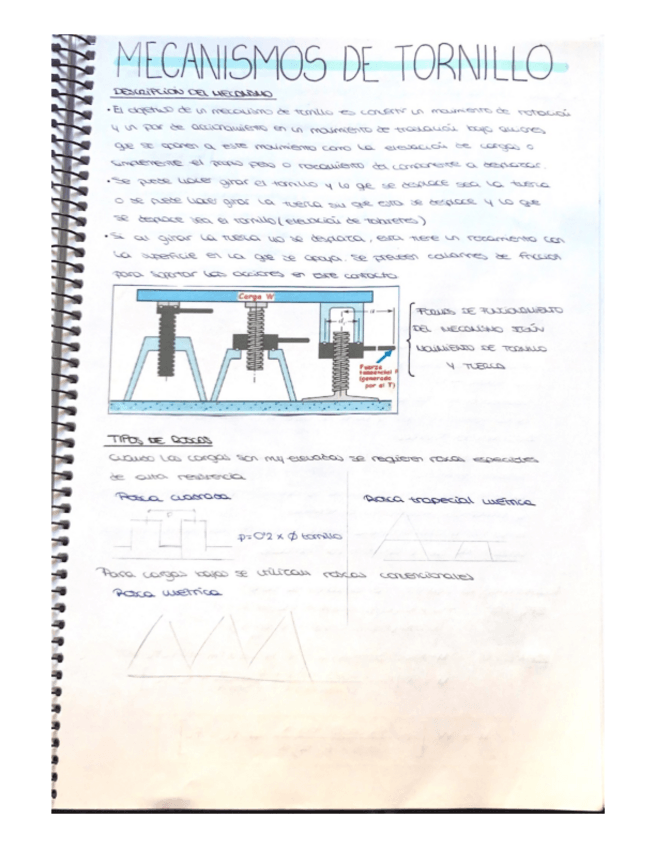 MECANISMOS DE TORNILLO
DESCRIPCIÓN DEL MECANISMO
• El objetivo de un mecanismo de tornillo es convertir un movimiento de rotación
y un par de accionamiento en un movimiento de traslación bajo acciones
que se oponen a este movimiento como la elevación de cargas o
simplemente el propio peso o rozamiento del componente a desplazar.
• Se puede hacer girar el tornillo y lo qe se desplace sea la tuerca
o se puede hacer girar la tuerca sin qe esta se desplace y lo qe
se desplace sea el tornillo (elevación de
• Si al girar la tuerca no se desplaza, esta tiene un rozamiento con
la superficie en la qe se apoya. Se prevén collarines de fricción
para soportar las acciones en este contacto
Carga W
Fuerza
tangencial F
(generada
por el T)
FORMAS DE FUNCIONAMIENTO
DEL MECANISMO SEGÚN
MOVIMIENTO DE TORNILLO
Y TUERCA
TIPOS DE ROSCAS
Cuando las cargas son muy elevadas se requieren roscas especiales
de alta resistencia
Rosca cuadrada
Rosca trapecial métrica
p=0'2 x Ø tornillo
Para cargas bajas se utilizan roscas convencionales
Rosca métrica